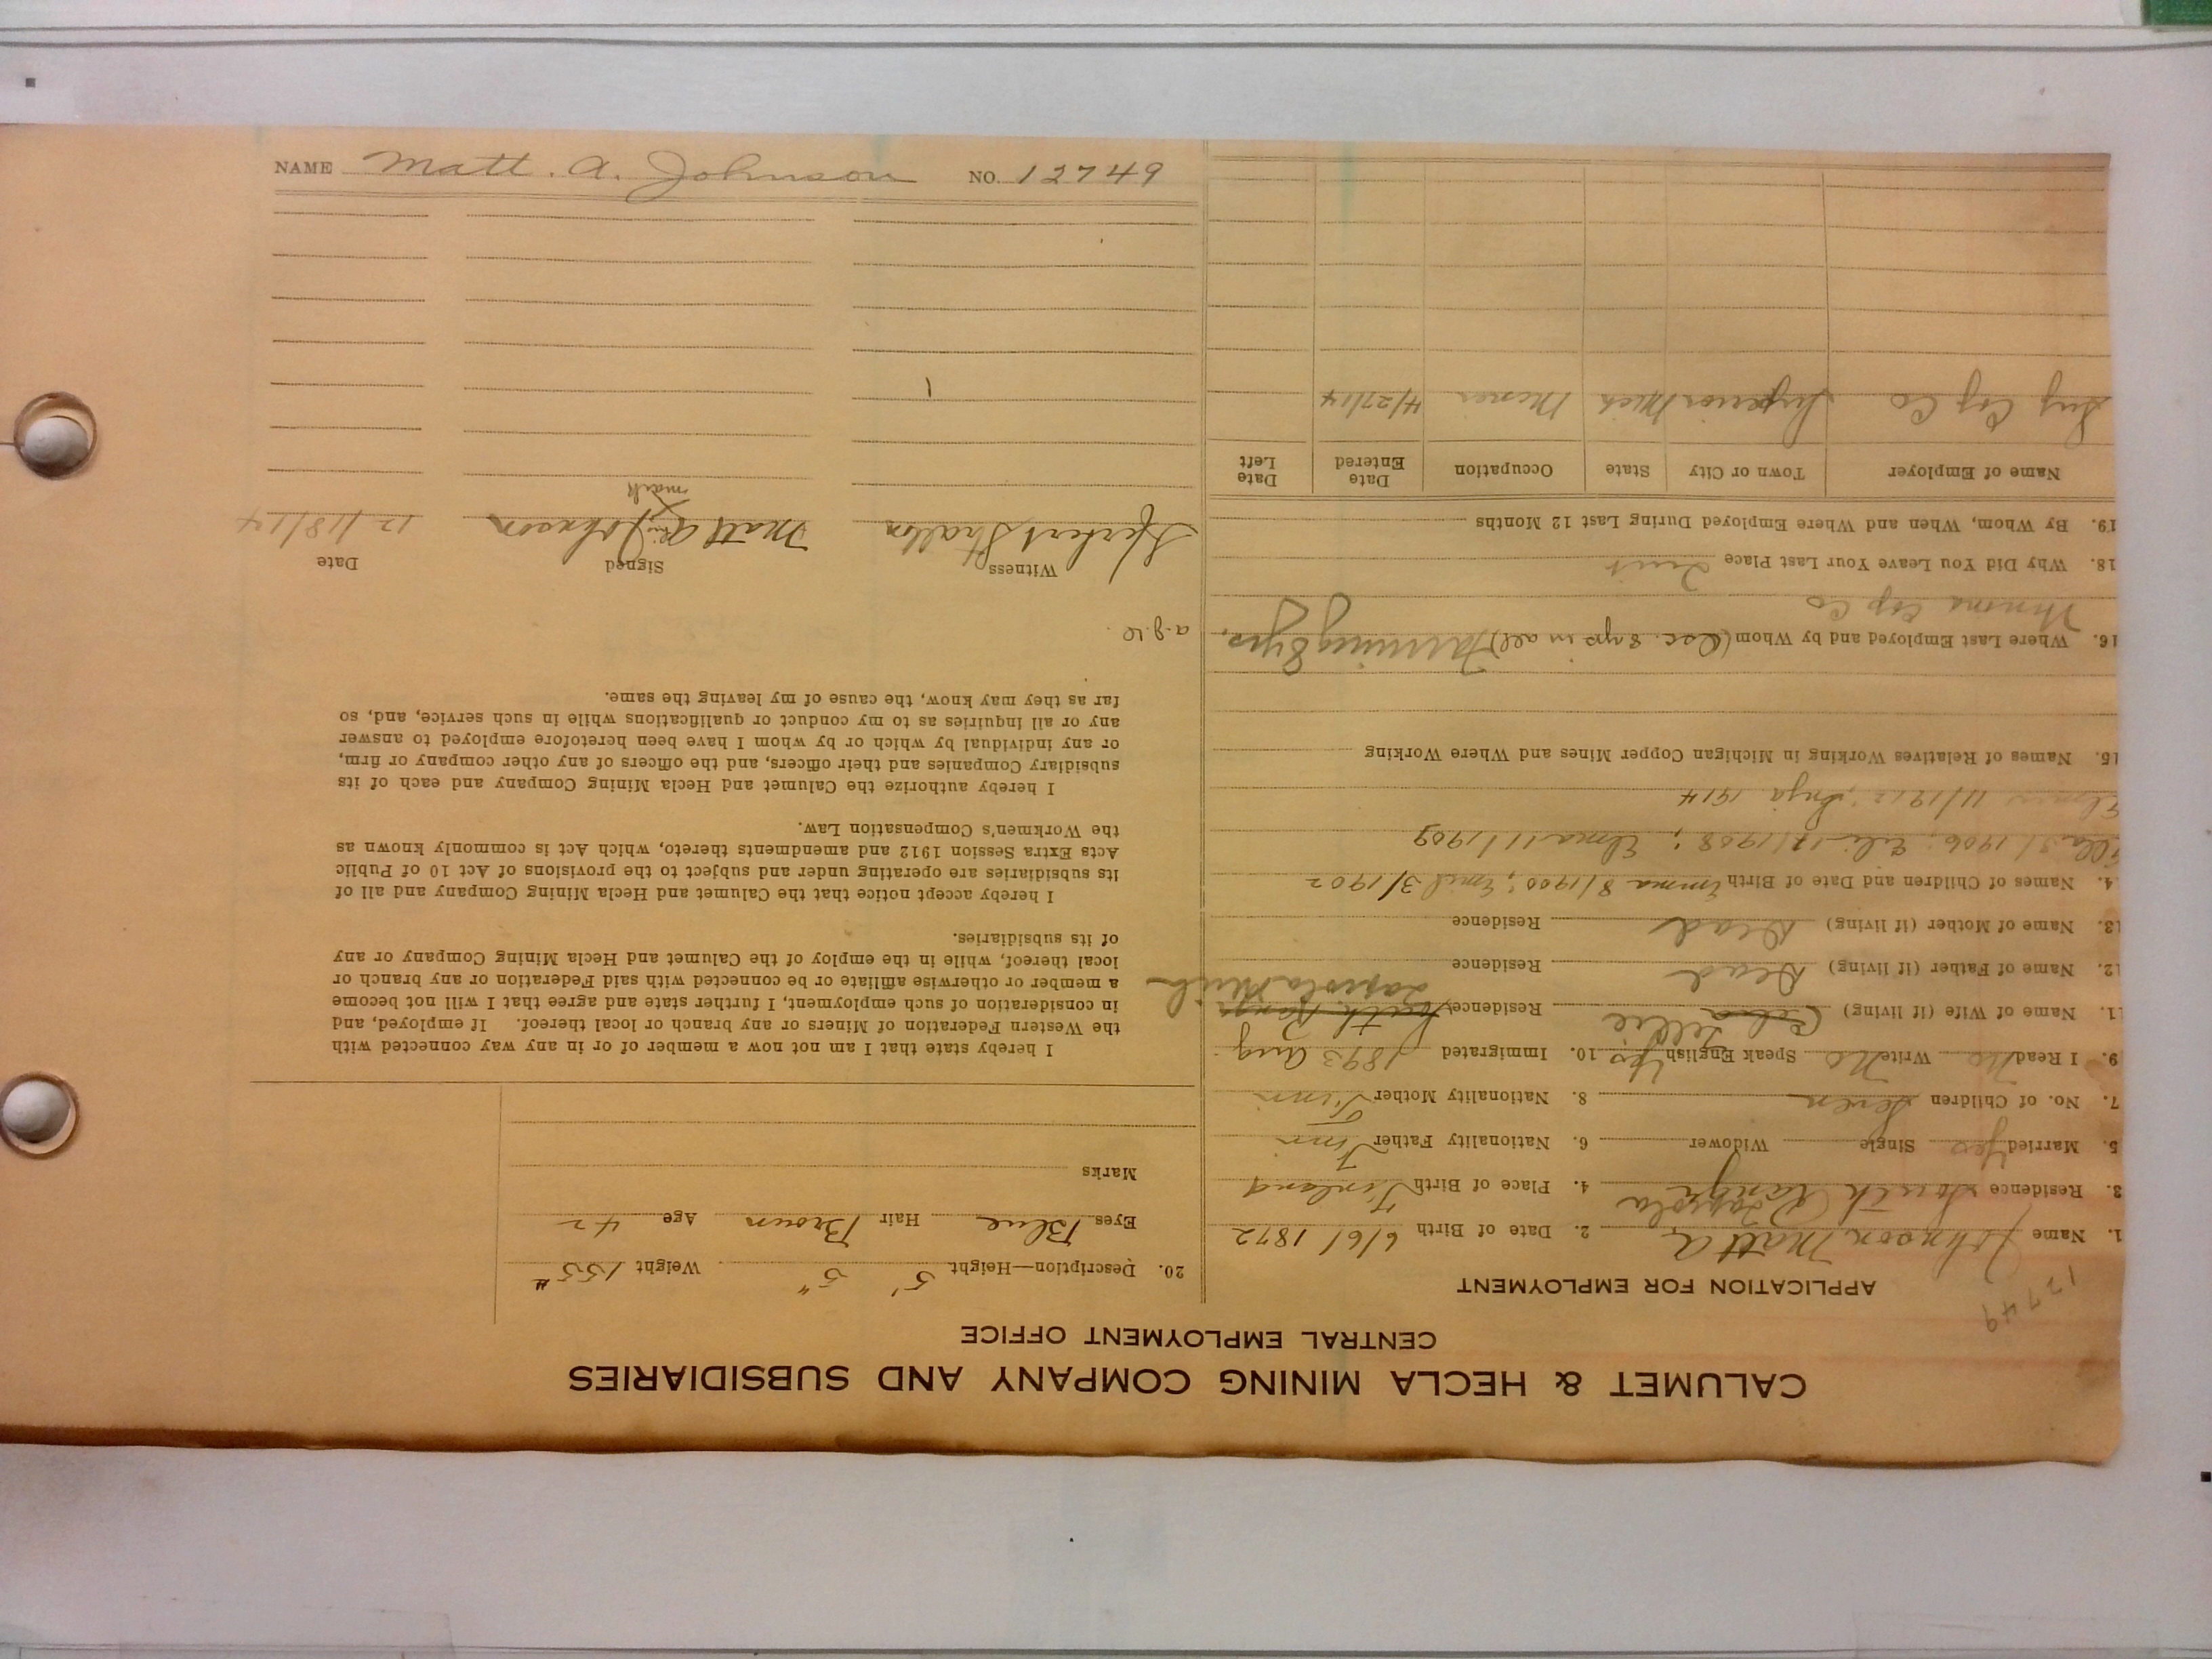 NAME Matt. A. Johnson NO. 12749
CALUMET & HECLA MINING COMPANY AND SUBSIDIARIES
CENTRAL EMPLOYMENT OFFICE
12749
APPLICATION FOR EMPLOYMENT
1. Name Johnson Matt A 2. Date of Birth 6/6/1872
Toivola
3. Residence South Range 4. Place of Birth Finland
5. Married Yes Single Widower 6. Nationality Father Finn
7. No. of Children Seven 8. Nationality Mother Finn
9. I Read No Write No Speak English Yes 10. Immigrated 1893 Aug
11. Name of Wife (if living) Residence South Range
Toivola Mich
12. Name of Father (if living) Dead Residence
13. Name of Mother (if living) Dead Residence
4. Names of Children and Date of Birth Emma 8/1900; Emil 3/1902
1906; 1908; Elma 11/1909
11/1912; 1914
15. Names of Relatives Working in Michigan Copper Mines and Where Working
16. Where Last Employed and by Whom (Osc. 8 yrs in all) Farming 8 yrs.
Cop Co
18. Why Did You Leave Your Last Place Quit
19. By Whom, When and Where Employed During Last 12 Months
Name of Employer Town or City State Occupation Date Entered Date Left
Sup Cop Co Superior Mich Miner 4/27/14
20. Description—Height 5' 5" Weight 155#
Eyes Blue Hair Brown Age 42
Marks
I hereby state that I am not now a member of or in any way connected with
the Western Federation of Miners or any branch or local thereof. If employed, and
in consideration of such employment, I further state and agree that I will not become
a member or otherwise affiliate or be connected with said Federation or any branch or
local thereof, while in the employ of the Calumet and Hecla Mining Company or any
of its subsidiaries.
I hereby accept notice that the Calumet and Hecla Mining Company and all of
its subsidiaries are operating under and subject to the provisions of Act 10 of Public
Acts Extra Session 1912 and amendments thereto, which Act is commonly known as
the Workmen's Compensation Law.
I hereby authorize the Calumet and Hecla Mining Company and each of its
subsidiary Companies and their officers, and the officers of any other company or firm,
or any individual by which or by whom I have been heretofore employed to answer
any or all inquiries as to my conduct or qualifications while in such service, and, so
far as they may know, the cause of my leaving the same.
Witness Signed Date
Herbert Stratton Matt A. his X Johnson 12/18/14
mark